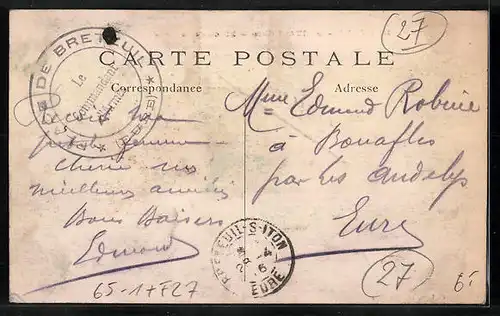 27
PLACE DE BRETEUIL (EURE)
Le
Commandant
d'Armes
CARTE POSTALE
Correspondance
Adresse
Reçois ma
petite femme
cherie mes
meilleurs amitiés
Bons Baisers
Edmond
Mme Edmond Robine
à Bouafles
par les andelys
Eure
BRETEUIL-S-ITON
EURE
27
65-1++F27
6f